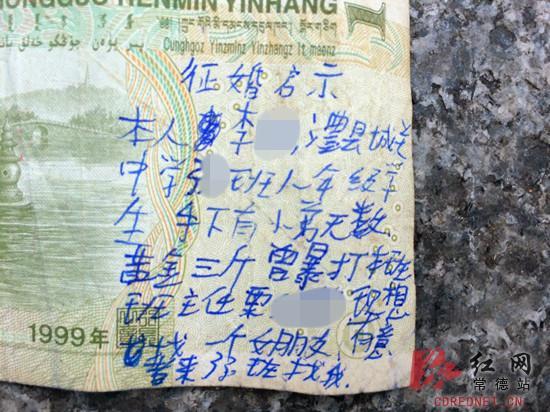 ONGGUO RENMIN YINHANG 1
Cunghgoz Yinzminz Yinzhangz It maenz
征婚启示
本人李 , 澧县城关
中学 班八年级学
生 手下有小弟无数
黄金三斤 曾暴打
班主任粟 现想
找一个女朋友, 有意
者来 班找我.
1999年
红网
常德站
CDREDNET.CN